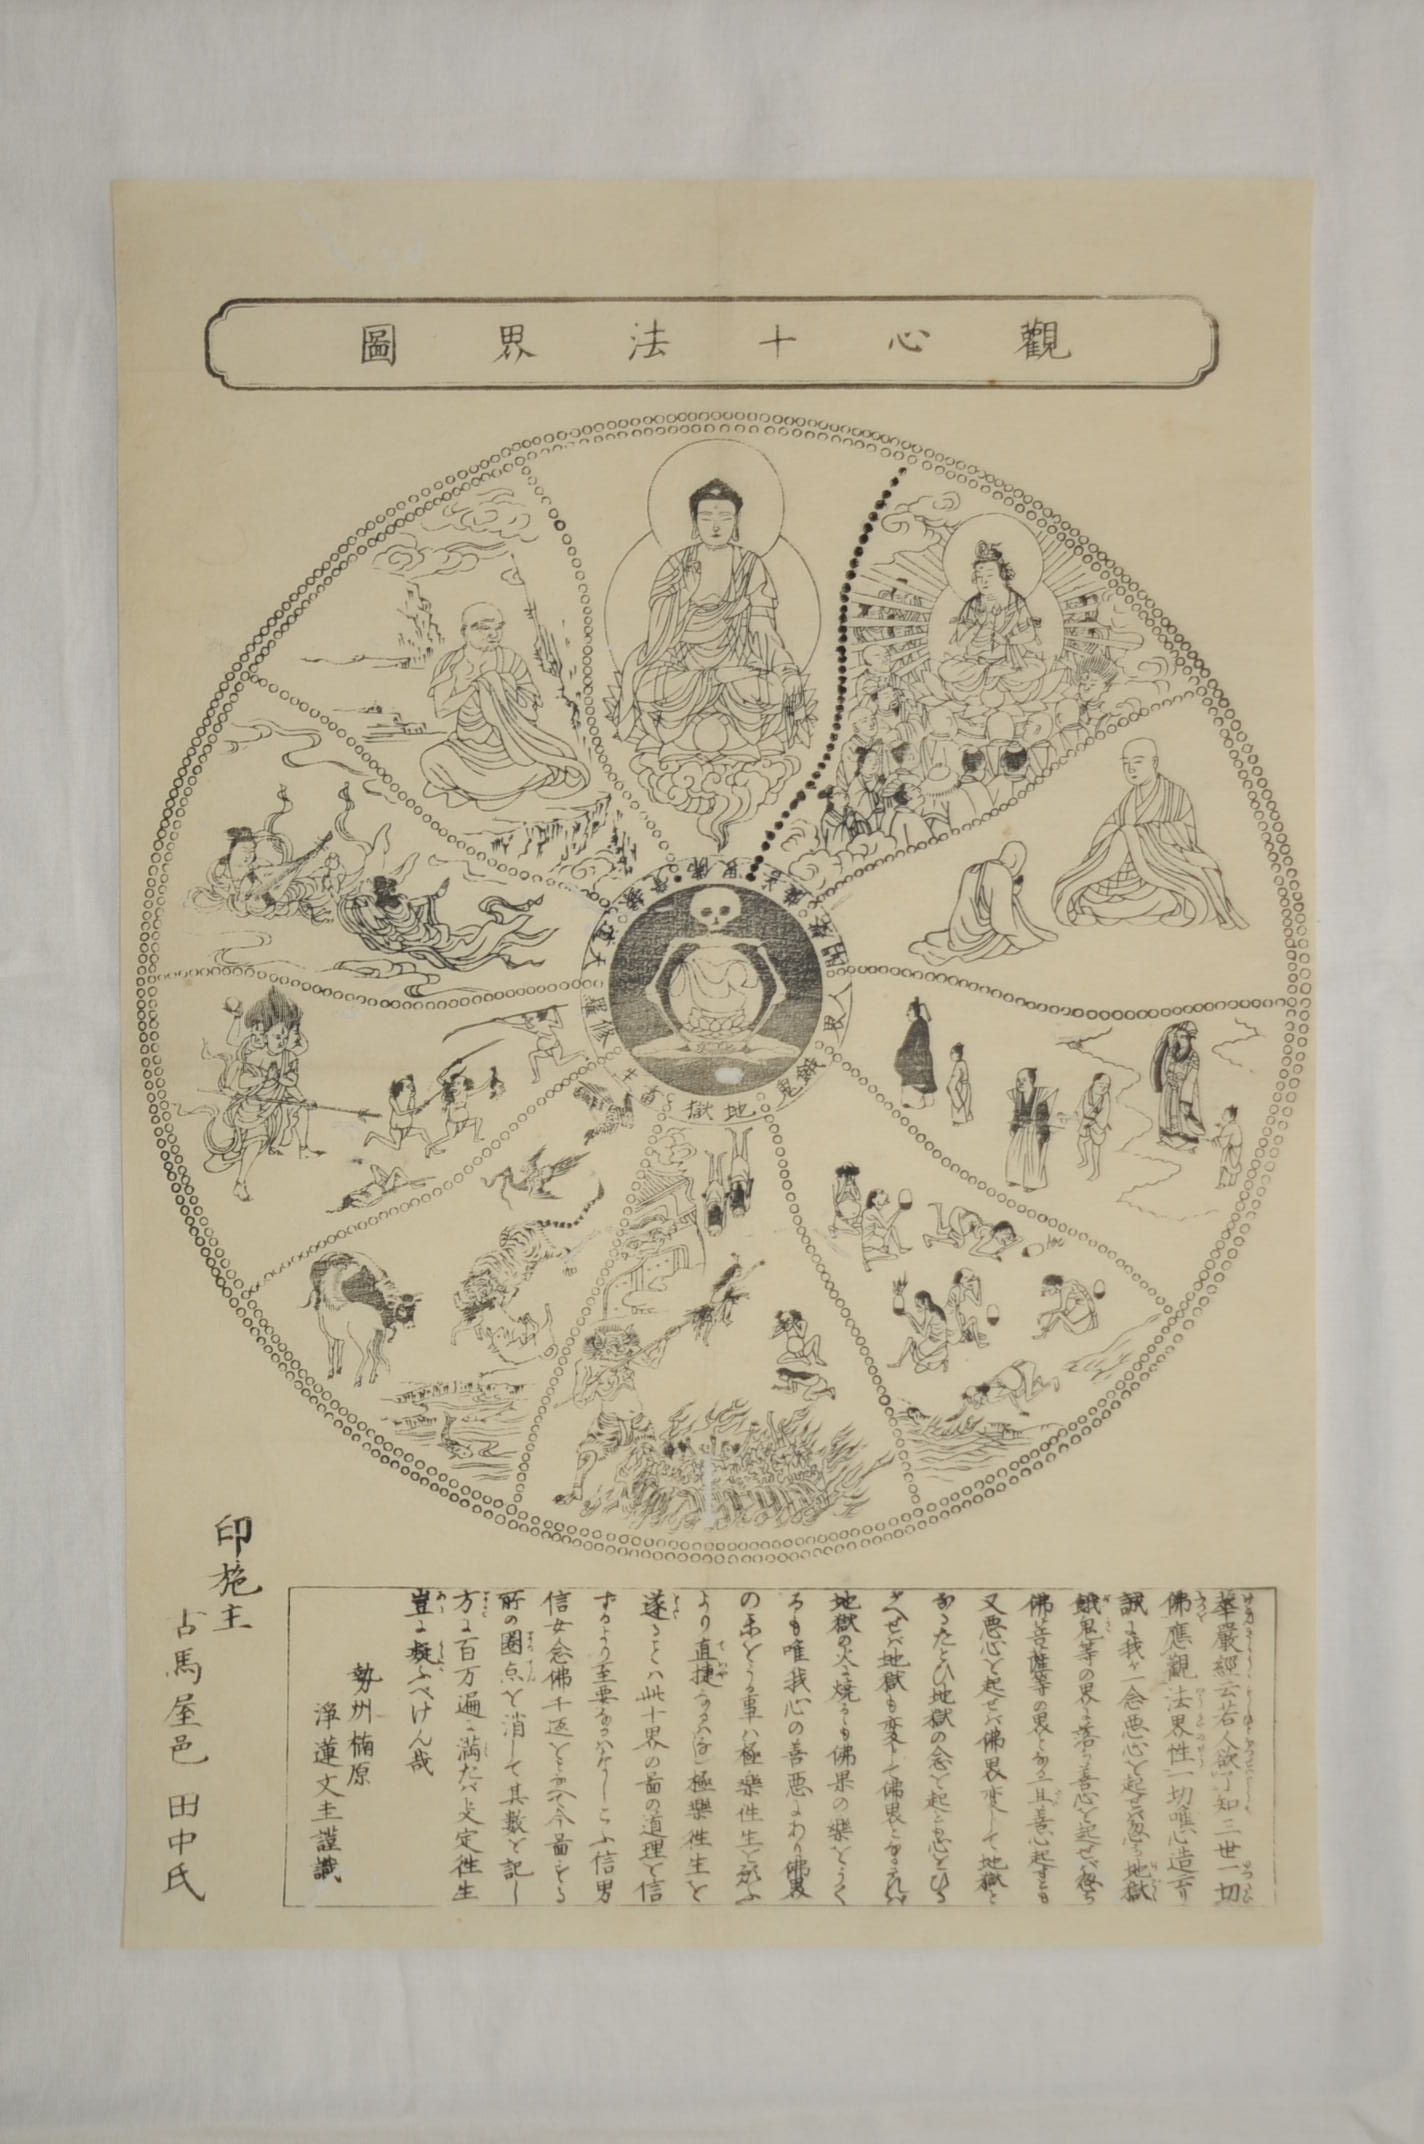 觀心十法界圖
佛界
菩薩
聲聞
人界
餓鬼
地獄
畜生
修羅
天道
縁覚
華嚴經云若人欲了知三世一切
佛應觀法界性一切唯心造
我一念悪心と起せバ忽ち地獄
餓鬼等の界に落ち善心を起せバ忽ち
佛菩薩等の界と
又悪心を起せバ佛界変じて地獄と
たとひ地獄の念を起とも
バ地獄も変じて佛界と
地獄の火に焼るゝも佛果の樂をうく
るも唯我心の善悪にわり佛界
の樂をうる事ハ極樂往生を願ふ
より直捷なるハなし極樂往生を
遂ることハ此十界の圖の道理を信
ずるより至要なるハなしこふ信男
信女念佛千返
所の圏点を消して其数を記し
方に百万遍に満たバ決定往生
豈に疑ふべけん哉
勢州楠原
淨蓮文圭謹識
印施主
古馬屋邑 田中氏